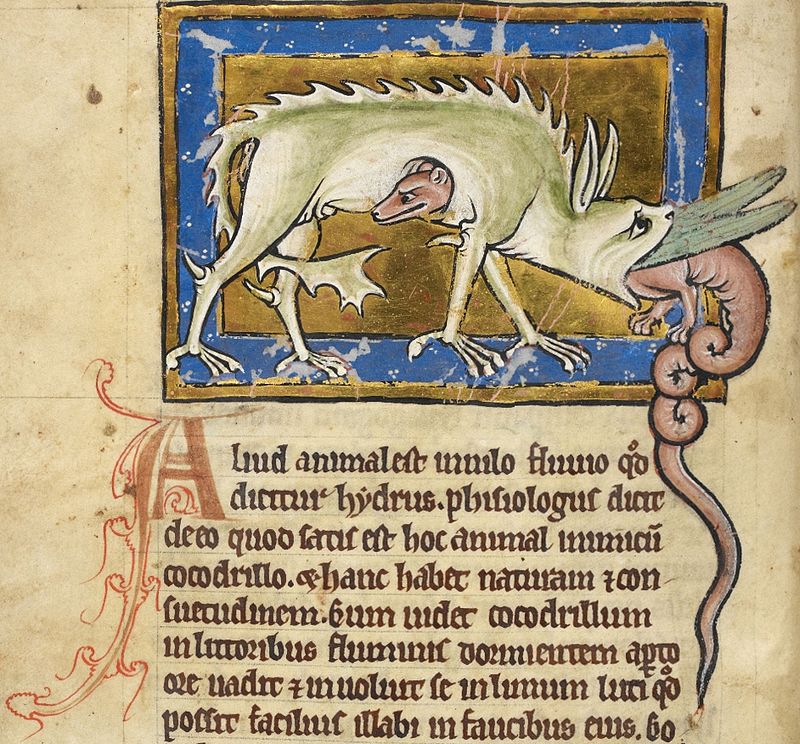 Aliud animal est in nilo fluuio qd̉
dicitur hydrus. phisiologus dicit
de eo quod satis est hoc animal inimicū
cocodrillo. & hanc habet naturam ⁊ con
suetudinem. Cum uidet cocodrillum
in littoribus fluminis dormientem apto
ore uadit ⁊ inuoluit se in limum luti qd̉
possit facilius illabi in faucibus eius. Co